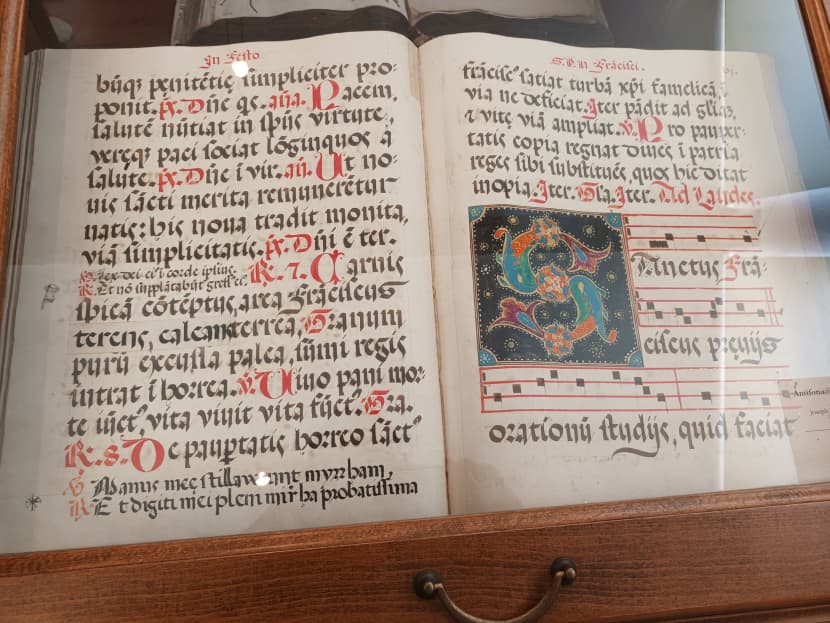 In Festo
busq; penitētie simpliciter pro-
ponit. ps. Dñe qs. aña. Pacem,
salutē nūtiat in spūs virtute,
vereq; paci sociat lōginquos a
salute. ps. Dñe ī vir. añ. Ut no-
uis sācti merita remunerētur
natis: his noua tradit monita,
viā simplicitatis. ps. Dñi ē ter.
V. Lex Dei eiꝰ ī corde ipsius.
R. Et nō supplātabūt gressꝰ eiꝰ.
R. 7. Carnis
spicā cōtēptus, area Frāciscus
terens, calcans terrea, Granum
purū excussa palea, sūmi regis
intrat ī horrea. V. Uiuo pani mor-
te iūctꝰ, vita viuit vita fūctꝰ. Gra.
R. 8. De paupertatis horreo sāctꝰ
V. Manus mee stillauerunt myrrham,
R. Et digiti mei pleni mirrha probatissima
S. P. N. Frācisci.
frāciscꝰ satiat turbā xpi famelicā, ī
via ne deficiat. Iter pādit ad gliaʒ,
& vite viā ampliat. V. Pro pauper-
tatis copia regnat diues ī patria
reges sibi substituēs, quos hic ditat
inopia. Iter. Gla. Iter. Ad Laudes.
Sanctus Frā-
ciscus preuijs
orationū studijs, quid faciat
Antifonar
Joseph